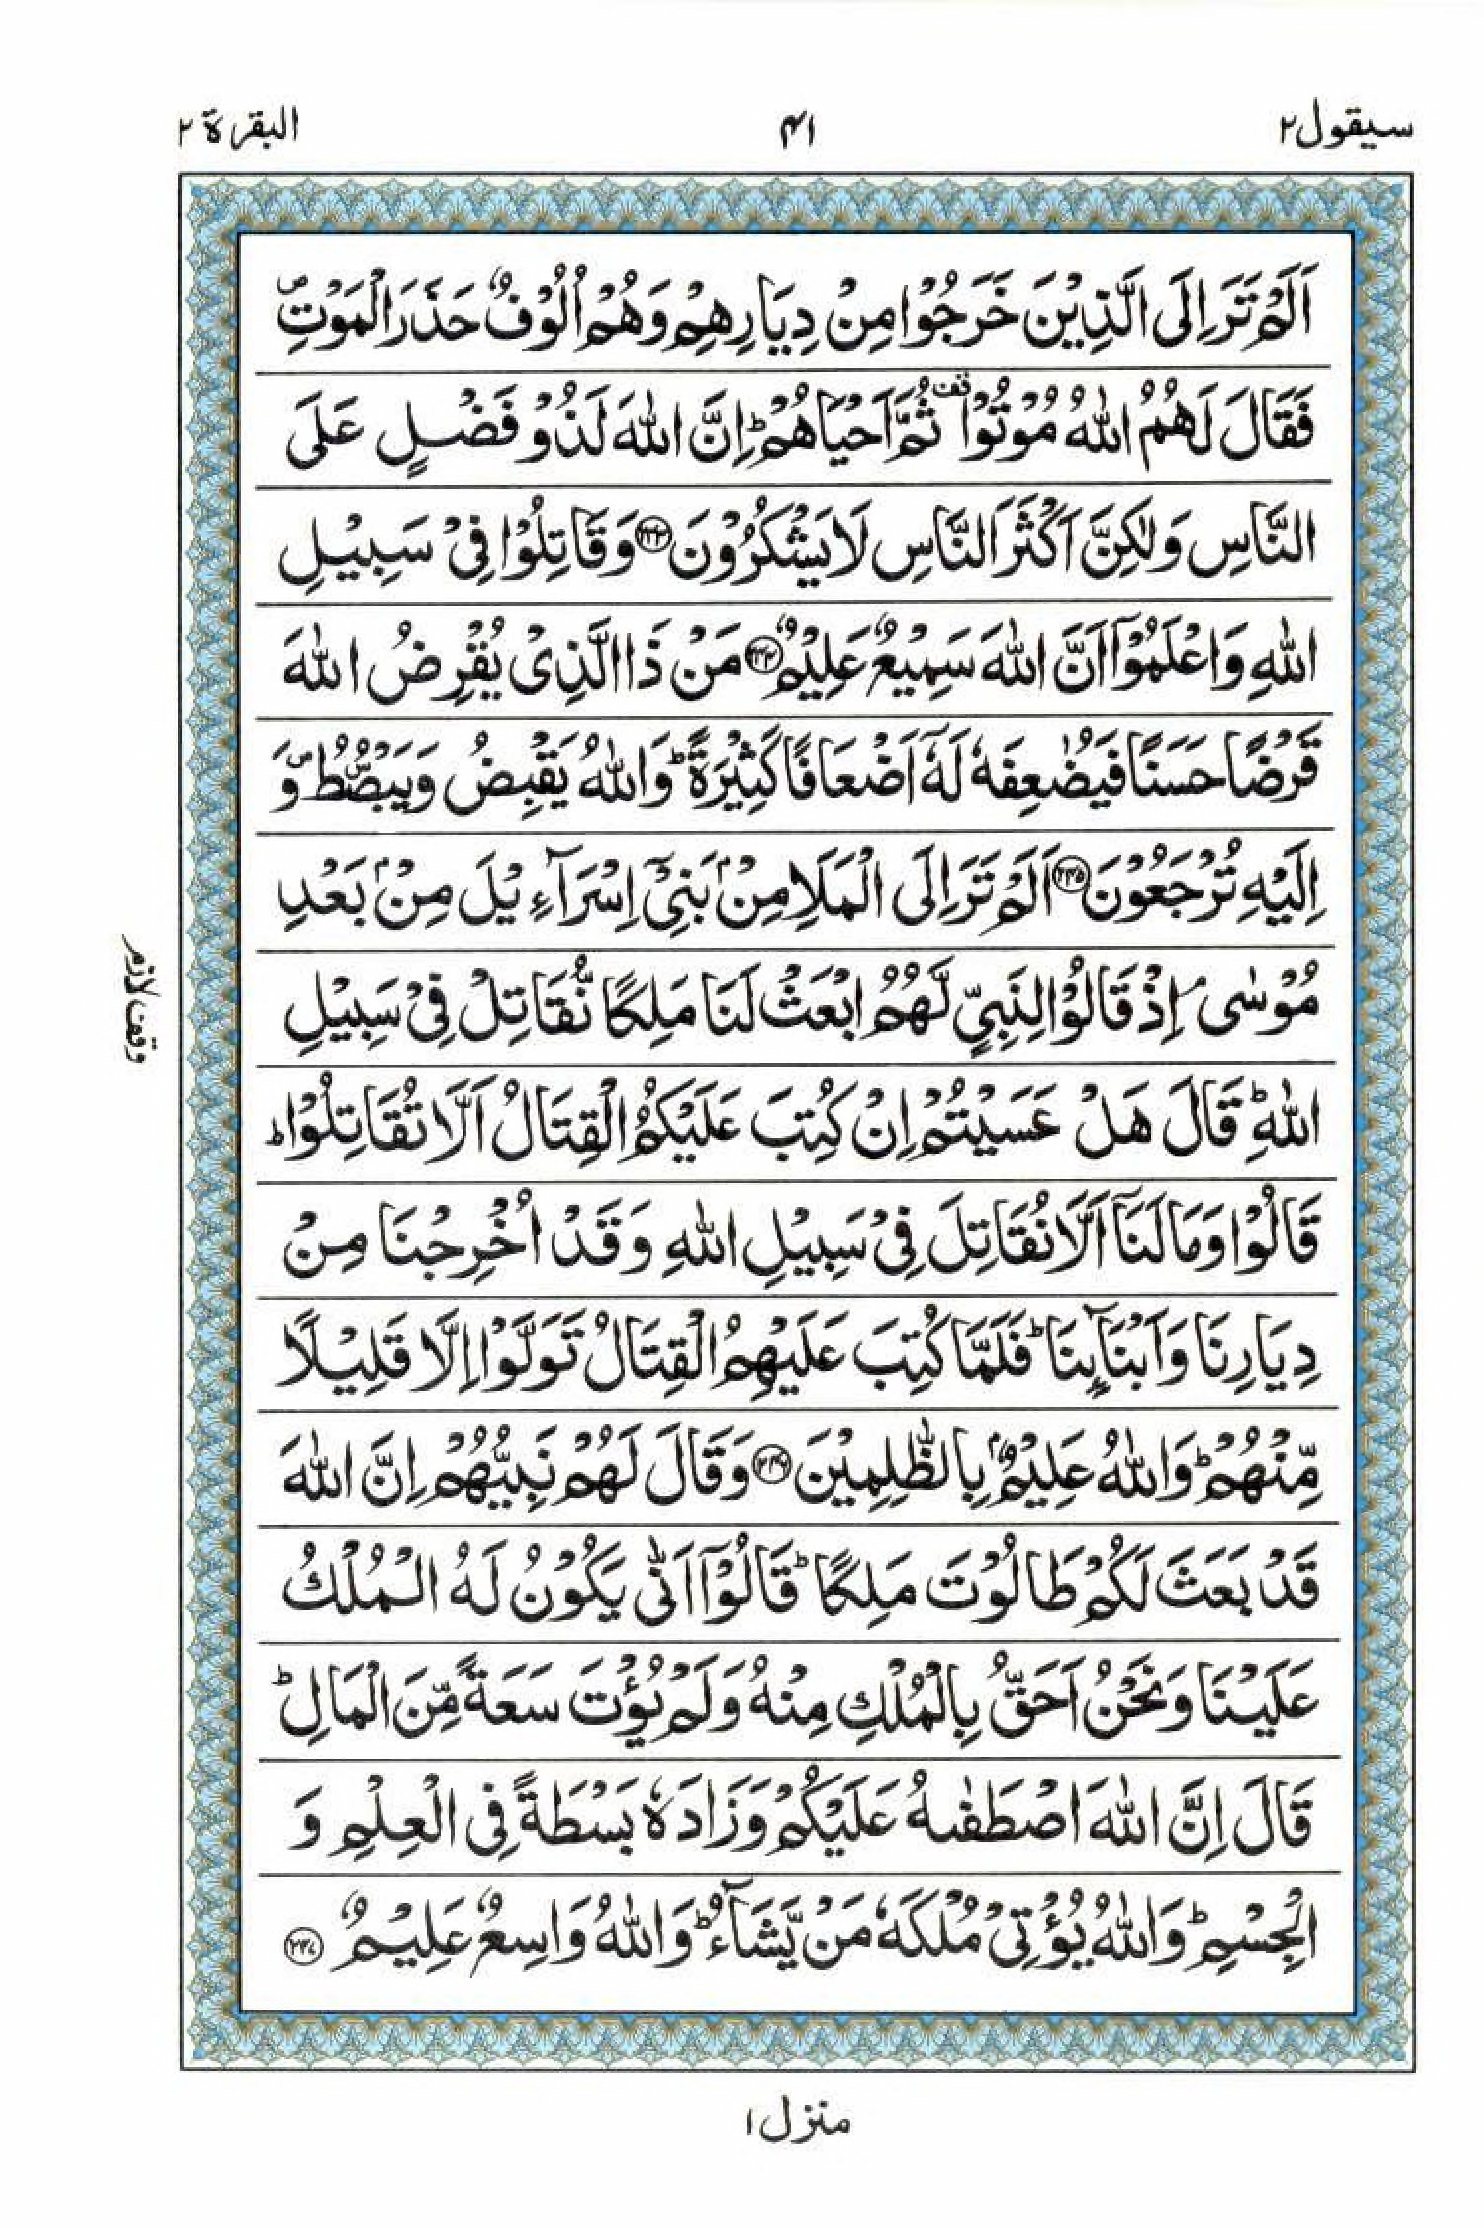 سيقول ٢
٤١
البقرة ٢
اَلَمْ تَرَ اِلَى الَّذِيْنَ خَرَجُوْا مِنْ دِيَارِهِمْ وَهُمْ اُلُوْفٌ حَذَرَ الْمَوْتِ ۪
فَقَالَ لَهُمُ اللّٰهُ مُوْتُوْا ۫ ثُمَّ اَحْيَاهُمْ ؕ اِنَّ اللّٰهَ لَذُوْ فَضْلٍ عَلَى
النَّاسِ وَلٰكِنَّ اَكْثَرَ النَّاسِ لَا يَشْكُرُوْنَ ﴿٢٤٣﴾ وَقَاتِلُوْا فِيْ سَبِيْلِ
اللّٰهِ وَاعْلَمُوْٓا اَنَّ اللّٰهَ سَمِيْعٌ عَلِيْمٌ ﴿٢٤٤﴾ مَنْ ذَا الَّذِيْ يُقْرِضُ اللّٰهَ
قَرْضًا حَسَنًا فَيُضٰعِفَهٗ لَهٗٓ اَضْعَافًا كَثِيْرَةً ؕ وَاللّٰهُ يَقْبِضُ وَيَبْصُۜطُ ۪ وَ
اِلَيْهِ تُرْجَعُوْنَ ﴿٢٤٥﴾ اَلَمْ تَرَ اِلَى الْمَلَاِ مِنْۢ بَنِيْٓ اِسْرَآءِيْلَ مِنْۢ بَعْدِ
مُوْسٰى ۘ اِذْ قَالُوْا لِنَبِيٍّ لَّهُمُ ابْعَثْ لَنَا مَلِكًا نُّقَاتِلْ فِيْ سَبِيْلِ
اللّٰهِ ؕ قَالَ هَلْ عَسَيْتُمْ اِنْ كُتِبَ عَلَيْكُمُ الْقِتَالُ اَلَّا تُقَاتِلُوْا ؕ
قَالُوْا وَمَا لَنَآ اَلَّا نُقَاتِلَ فِيْ سَبِيْلِ اللّٰهِ وَقَدْ اُخْرِجْنَا مِنْ
دِيَارِنَا وَاَبْنَآئِنَا ؕ فَلَمَّا كُتِبَ عَلَيْهِمُ الْقِتَالُ تَوَلَّوْا اِلَّا قَلِيْلًا
مِّنْهُمْ ؕ وَاللّٰهُ عَلِيْمٌۢ بِالظّٰلِمِيْنَ ﴿٢٤٦﴾ وَقَالَ لَهُمْ نَبِيُّهُمْ اِنَّ اللّٰهَ
قَدْ بَعَثَ لَكُمْ طَالُوْتَ مَلِكًا ؕ قَالُوْٓا اَنّٰى يَكُوْنُ لَهُ الْمُلْكُ
عَلَيْنَا وَنَحْنُ اَحَقُّ بِالْمُلْكِ مِنْهُ وَلَمْ يُؤْتَ سَعَةً مِّنَ الْمَالِ ؕ
قَالَ اِنَّ اللّٰهَ اصْطَفٰىهُ عَلَيْكُمْ وَزَادَهٗ بَسْطَةً فِي الْعِلْمِ وَ
الْجِسْمِ ؕ وَاللّٰهُ يُؤْتِيْ مُلْكَهٗ مَنْ يَّشَآءُ ؕ وَاللّٰهُ وَاسِعٌ عَلِيْمٌ ﴿٢٤٧﴾
وقف لازم
منزل ١